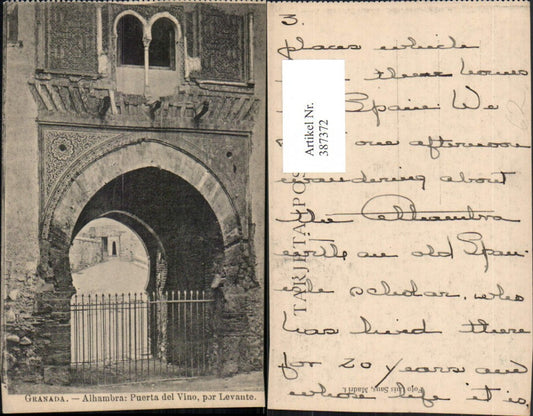 GRANADA. — Alhambra: Puerta del Vino, por Levante.
3.
places which
their homes
Spain. We
one afternoon
wandering about
the Alhambra
with an old Span-
ish scholar, who
has lived there
for 20 years and
whose life it is,
Artikel Nr.
387372
TARJETA POS